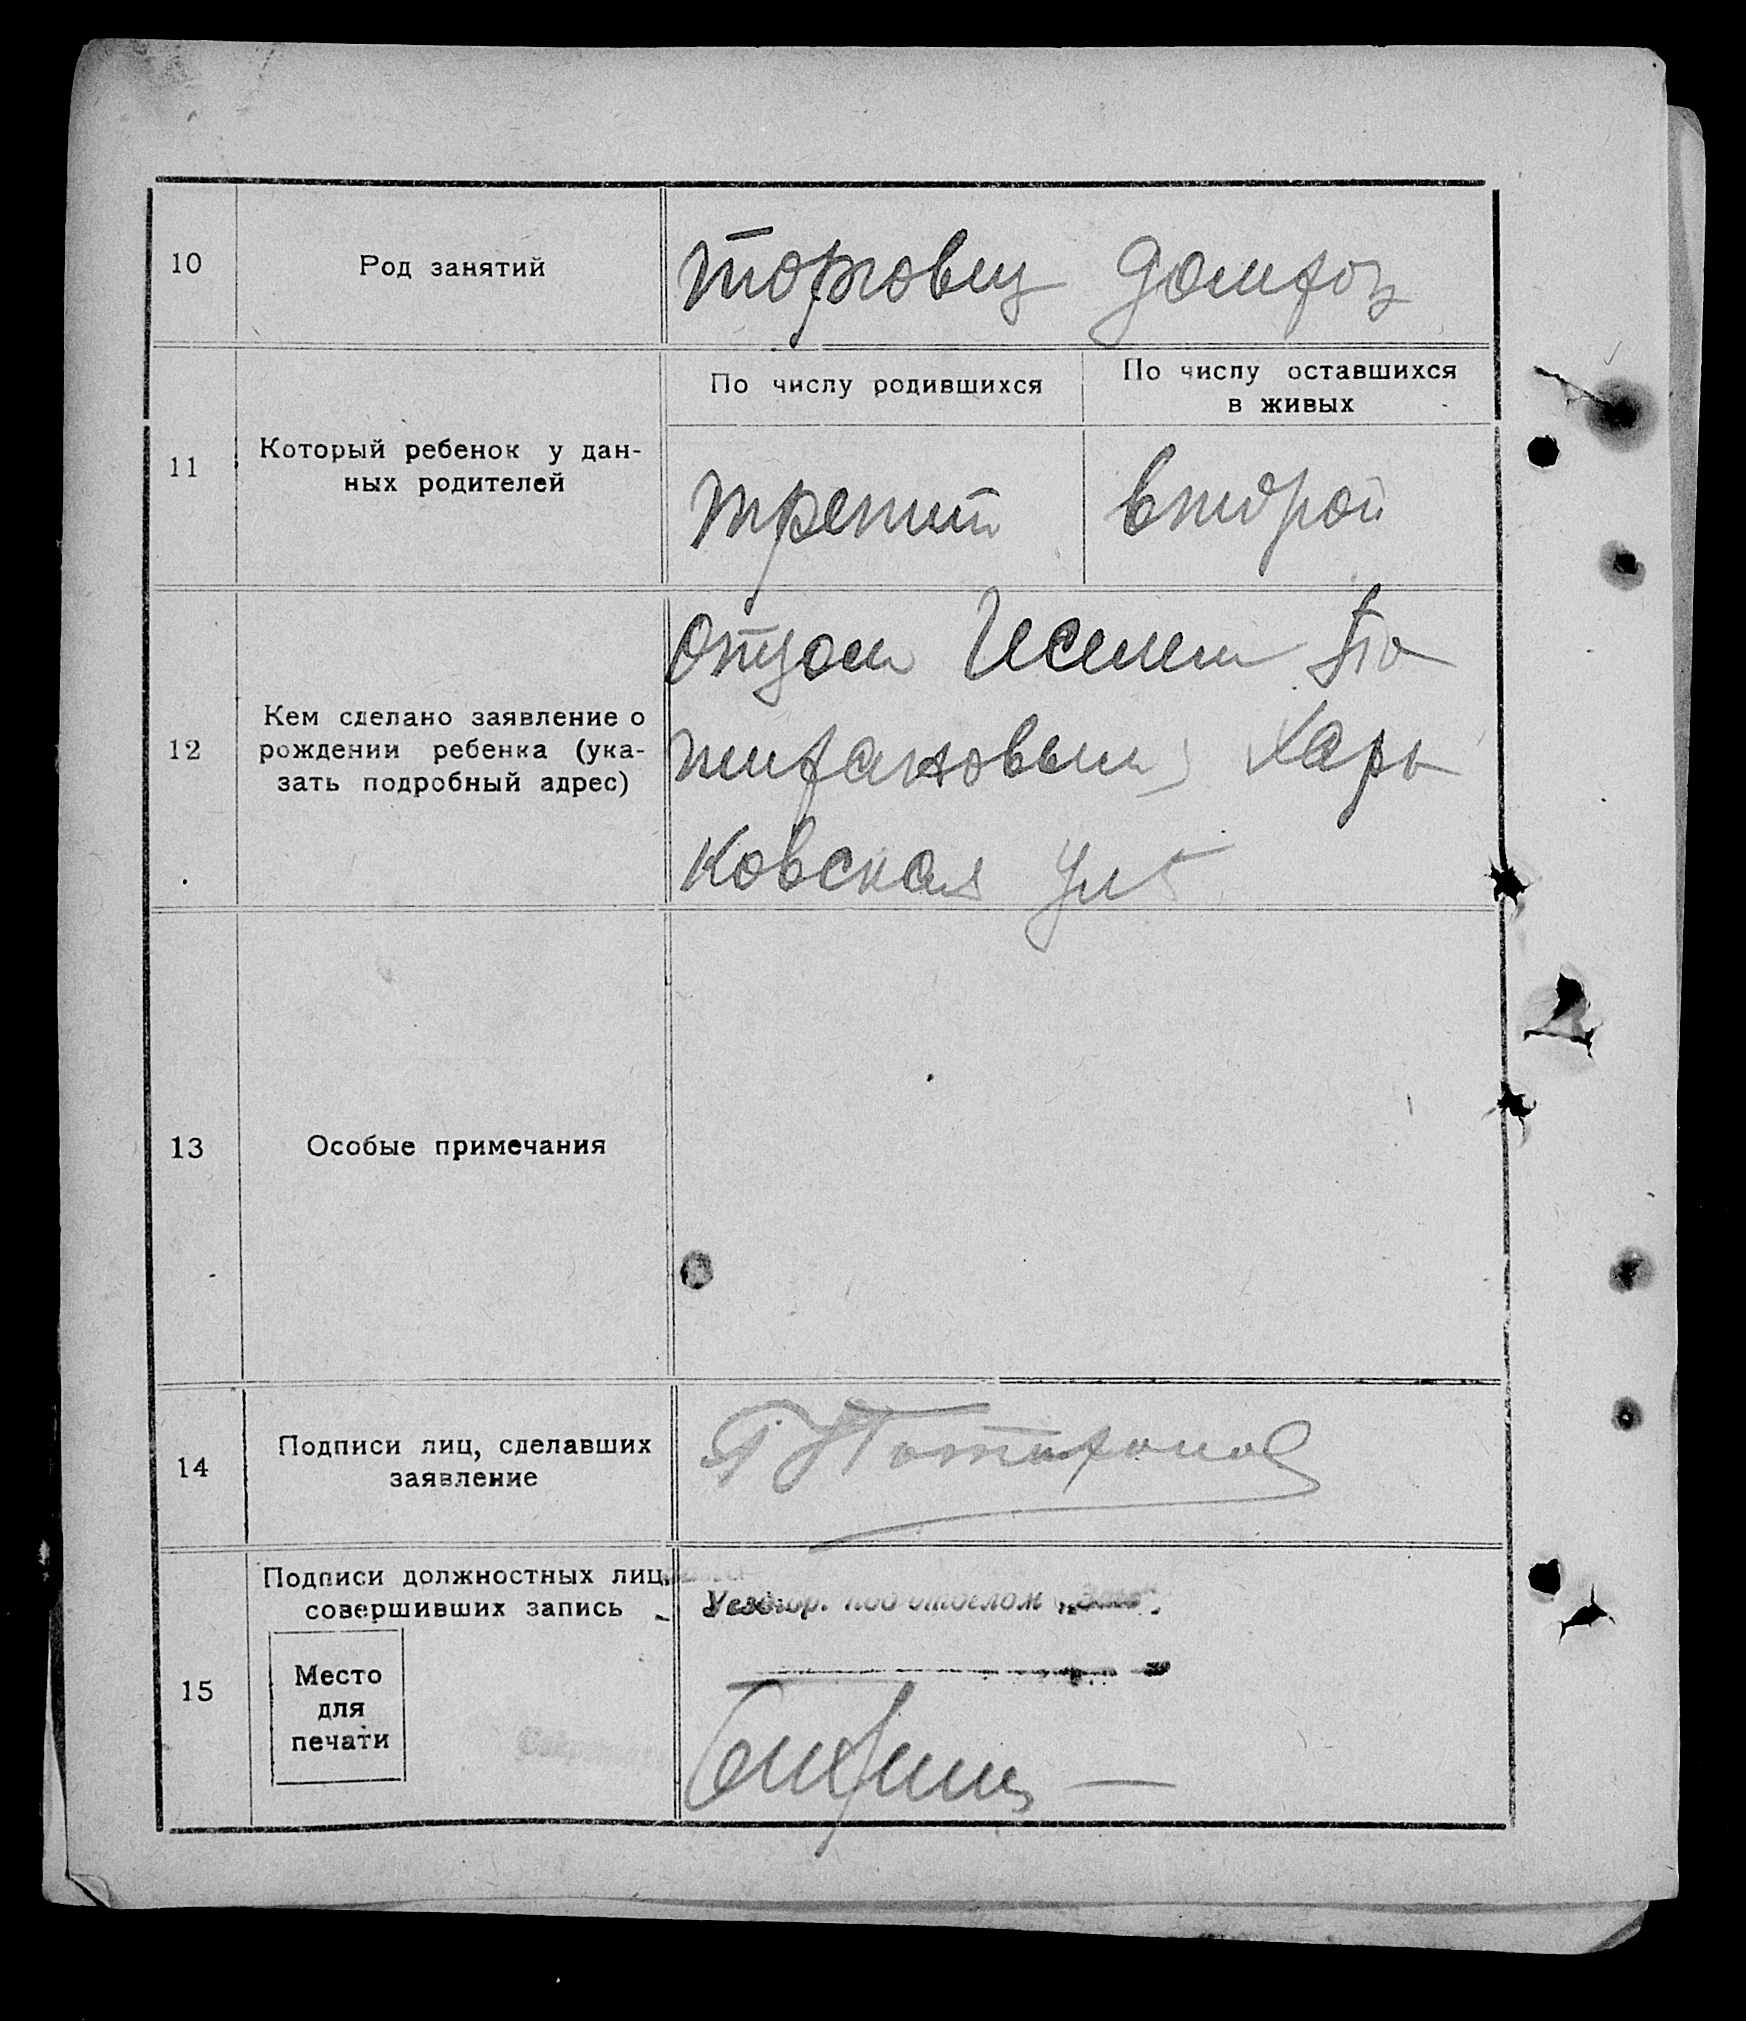 10 Род занятий торговец домхоз
По числу родившихся По числу оставшихся
в живых
11 Который ребенок у дан-
ных родителей
третий второй
12 Кем сделано заявление о
рождении ребенка (ука-
зать подробный адрес)
Отцом По
тихановым Харь
ковская ул
13 Особые примечания
14 Подписи лиц, сделавших
заявление
15 Подписи должностных лиц,
совершивших запись
под отделом
Место
для
печати